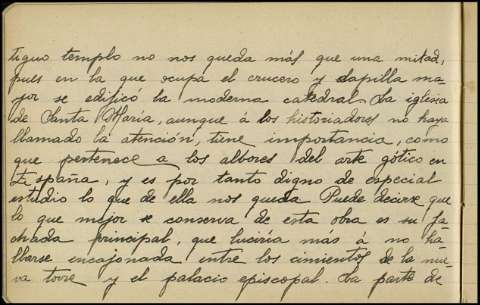 tiguo templo no nos queda más que una mitad,
pues en la que ocupa el crucero y capilla ma-
yor se edificó la moderna catedral. La iglesia
de Santa María, aunque á los historiadores no haya
llamado la atención, tiene importancia, como
que pertenece a los albores del arte gótico en
España, y es por tanto digno de especial
estudio lo que de ella nos queda Puede decirse que
lo que mejor se conserva de esta obra es su fa
chada principal, que luciría más á no ha-
llarse encajonada entre los cimientos de la nue-
va torre y el palacio episcopal. La parte de